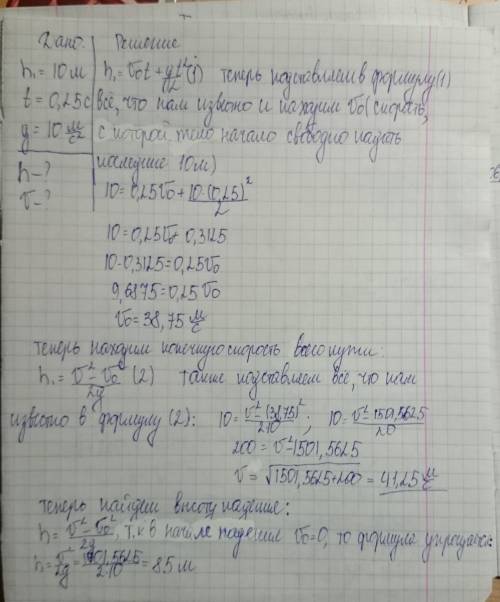 Дано Решение
h₁ = 10 м h₁ = v₀t + gt²/2 (1) теперь подставляем в формулу (1)
t = 0,25 с всё, что нам известно и находим v₀ (скорость,
g = 10 м/с² с которой тело начало свободно падать
h - ? последние 10 м)
v - ? 10 = 0,25v₀ + 10·(0,25)²/2
10 = 0,25v₀ + 0,3125
10 - 0,3125 = 0,25v₀
9,6875 = 0,25v₀
v₀ = 38,75 м/с
теперь находим конечную скорость всего пути:
h₁ = v² - v₀²/2g (2) также подставляем всё, что нам
известно в формулу (2): 10 = v² - (38,75)²/2·10 ; 10 = v² - 1501,5625/20
200 = v² - 1501,5625
v = √1501,5625+200 = 41,25 м/с
теперь найдём высоту падения:
h = v² - v₀²/2g, т.к в начале падения v₀ = 0, то формула упрощается:
h = v²/2g = 1701,5625/2·10 = 85 м